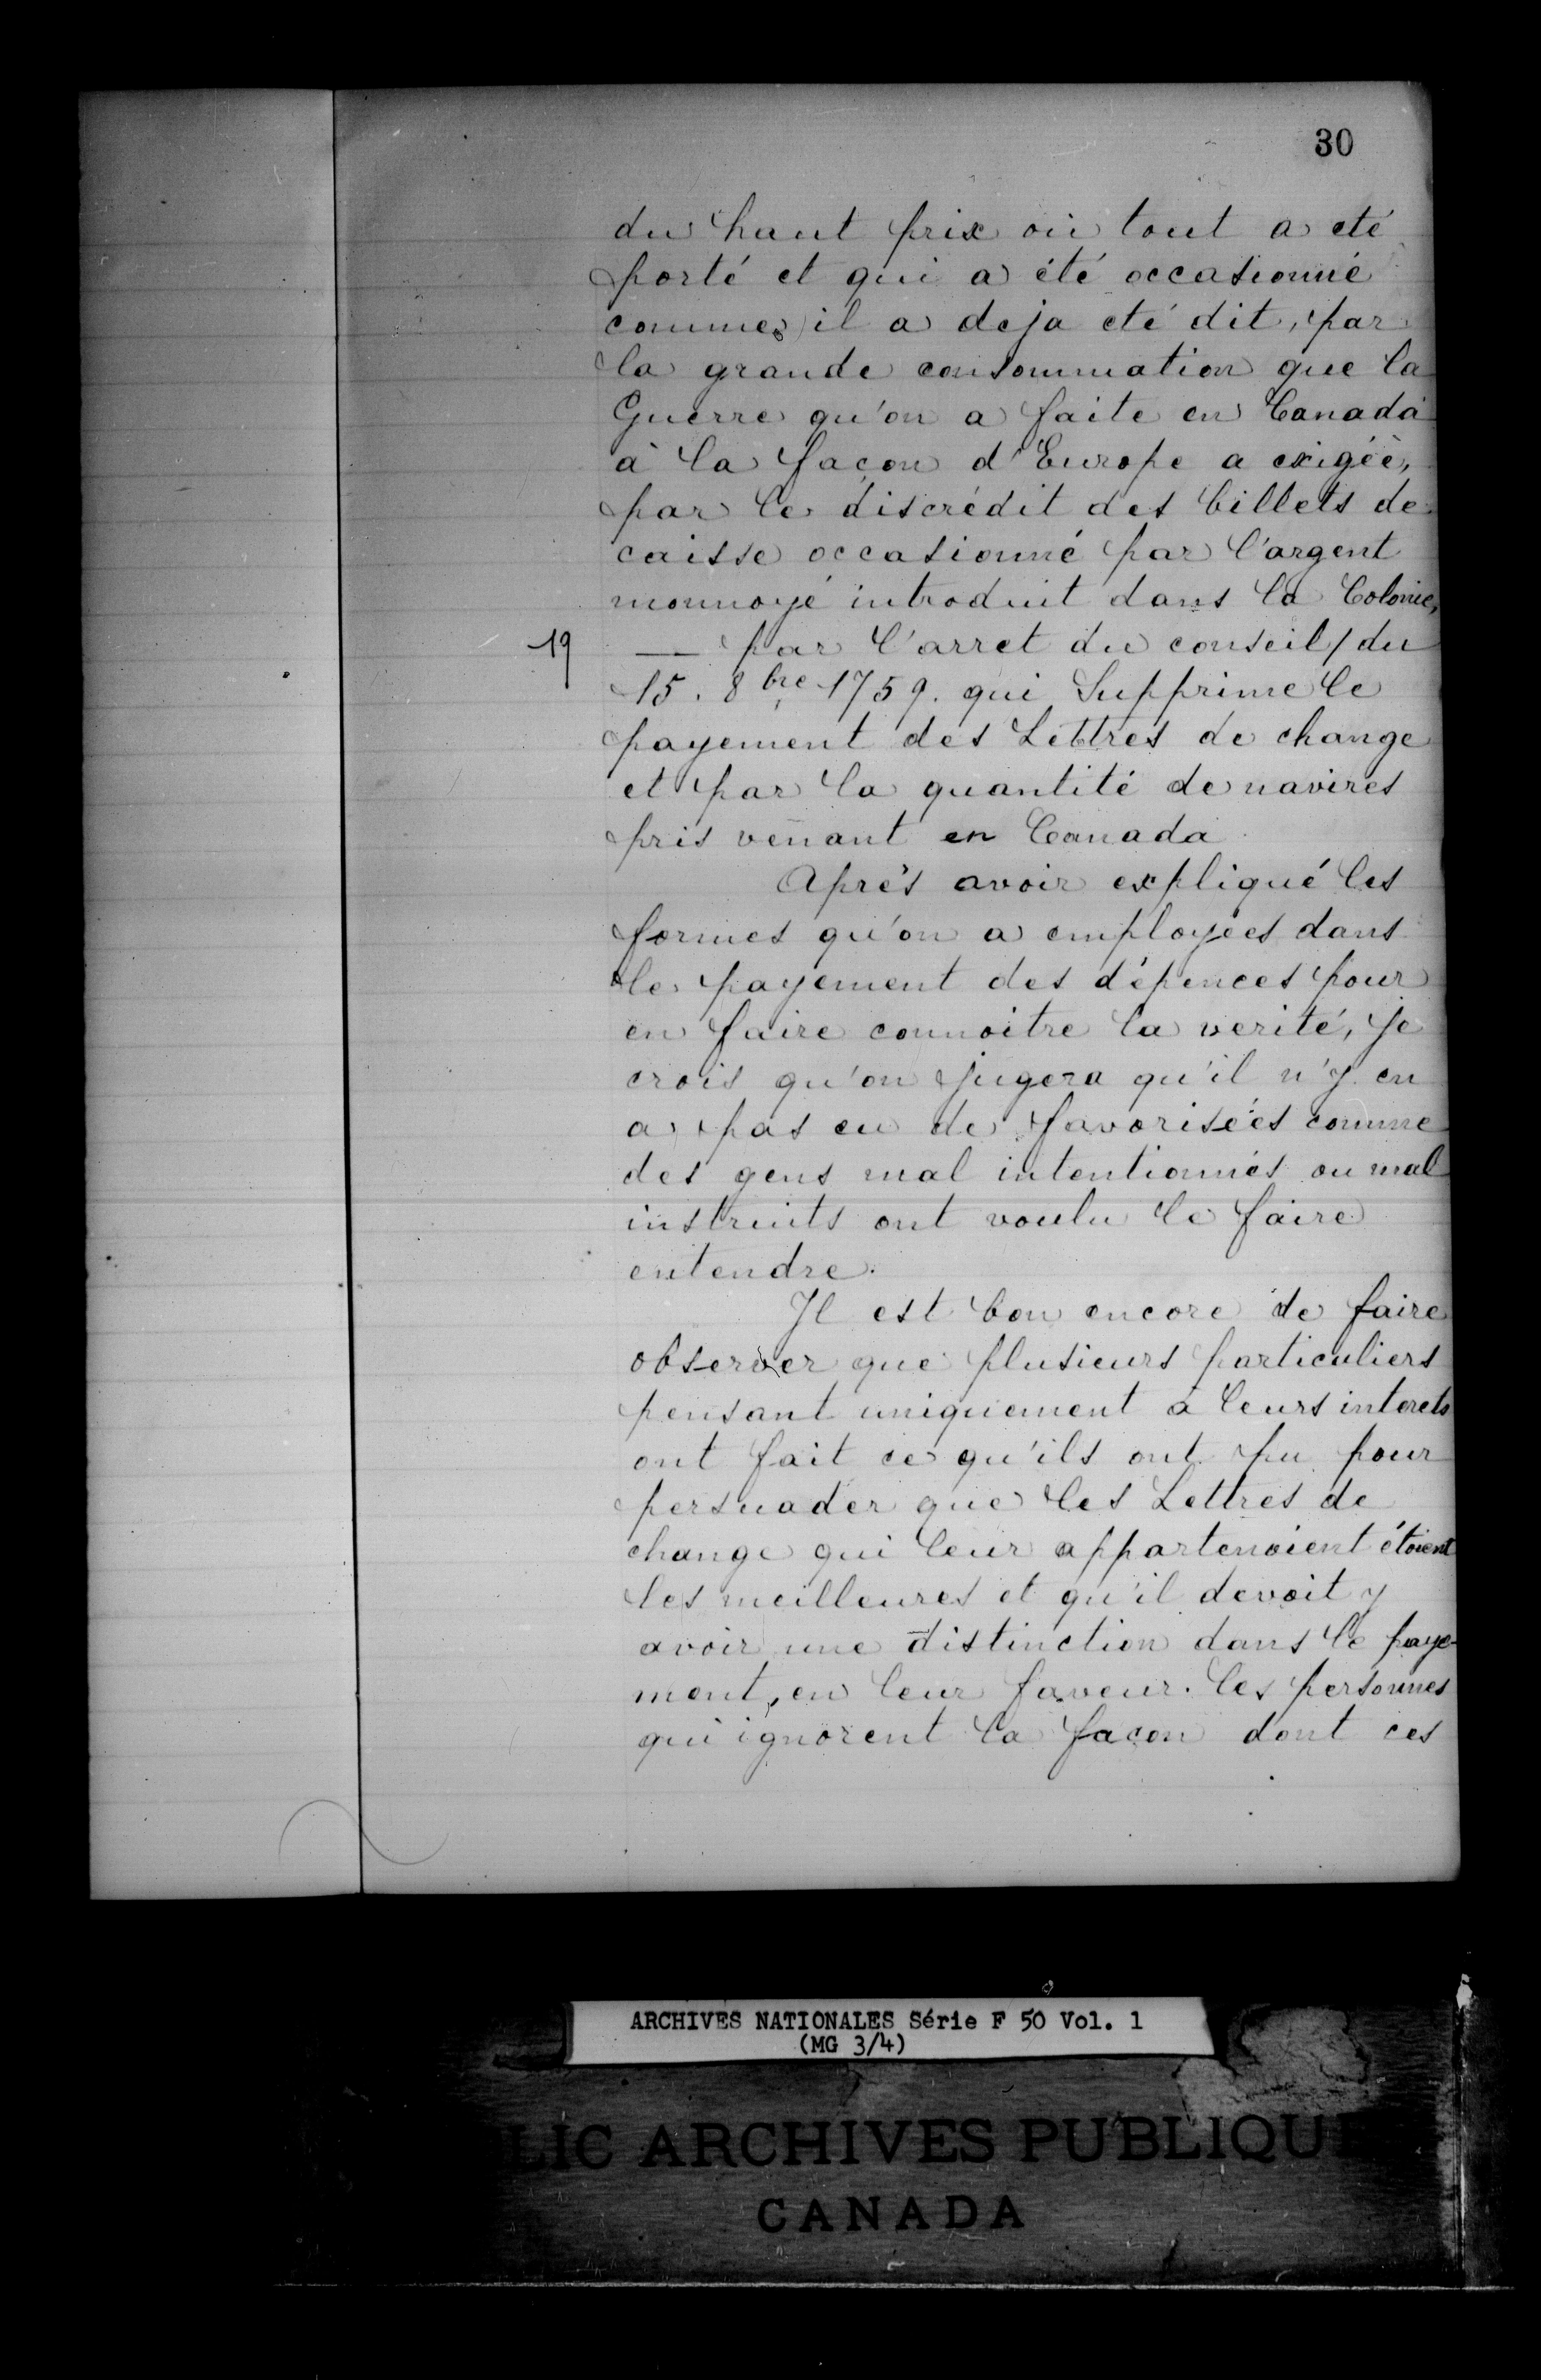 30
du haut prix où tout a eté
porté et qui a été occasionné
comme il a deja eté dit, par
la grande consommation que la
Guerre qu'on a faite en Canada
à la façon d'Europe a exigée,
par le discrédit des billets de
caisse occasionné par l'argent
monnoyé introduit dans la Colonie,
19 — par l'arret du conseil / du
15. 8bre 1759. qui Supprime le
payement des Lettres de change
et par la quantité de navires
pris venant en Canada
Aprés avoir expliqué les
formes qu'on a employées dans
le payement des dépences pour
en faire connoitre la verité, je
crois qu'on jugera qu'il n'y en
a pas eu de favorisées comme
des gens mal intentionnés ou mal
instruits ont voulu le faire
entendre.
Il est bon encore de faire
observer que plusieurs particuliers
pensant uniquement à leurs interets
ont fait ce qu'ils ont pu pour
persuader que les Lettres de
change qui leur appartenoient étoient
les meilleures et qu'il devoit y
avoir une distinction dans le paye-
ment, en leur faveur. les personnes
qui ignorent la façon dont ces
ARCHIVES NATIONALES Série F 50 Vol. 1
(MG 3/4)
LIC ARCHIVES PUBLIQUE
CANADA